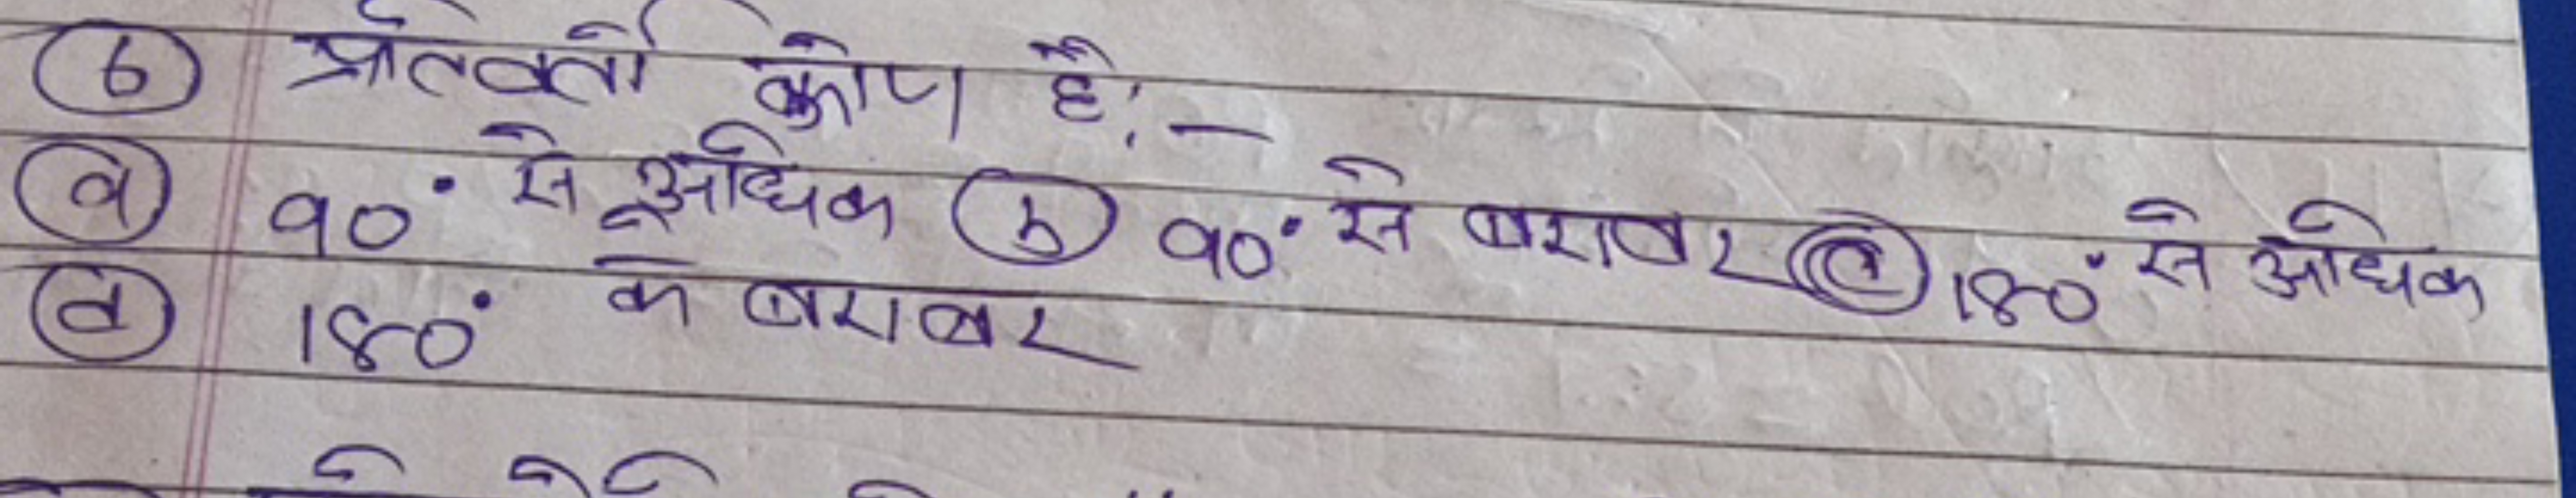 (6) प्रतिवर्ती कोण है:-
(a) 90° से अधिक (b) 90° से बराबर (c) 180° से अधिक
(d) 180° के बराबर